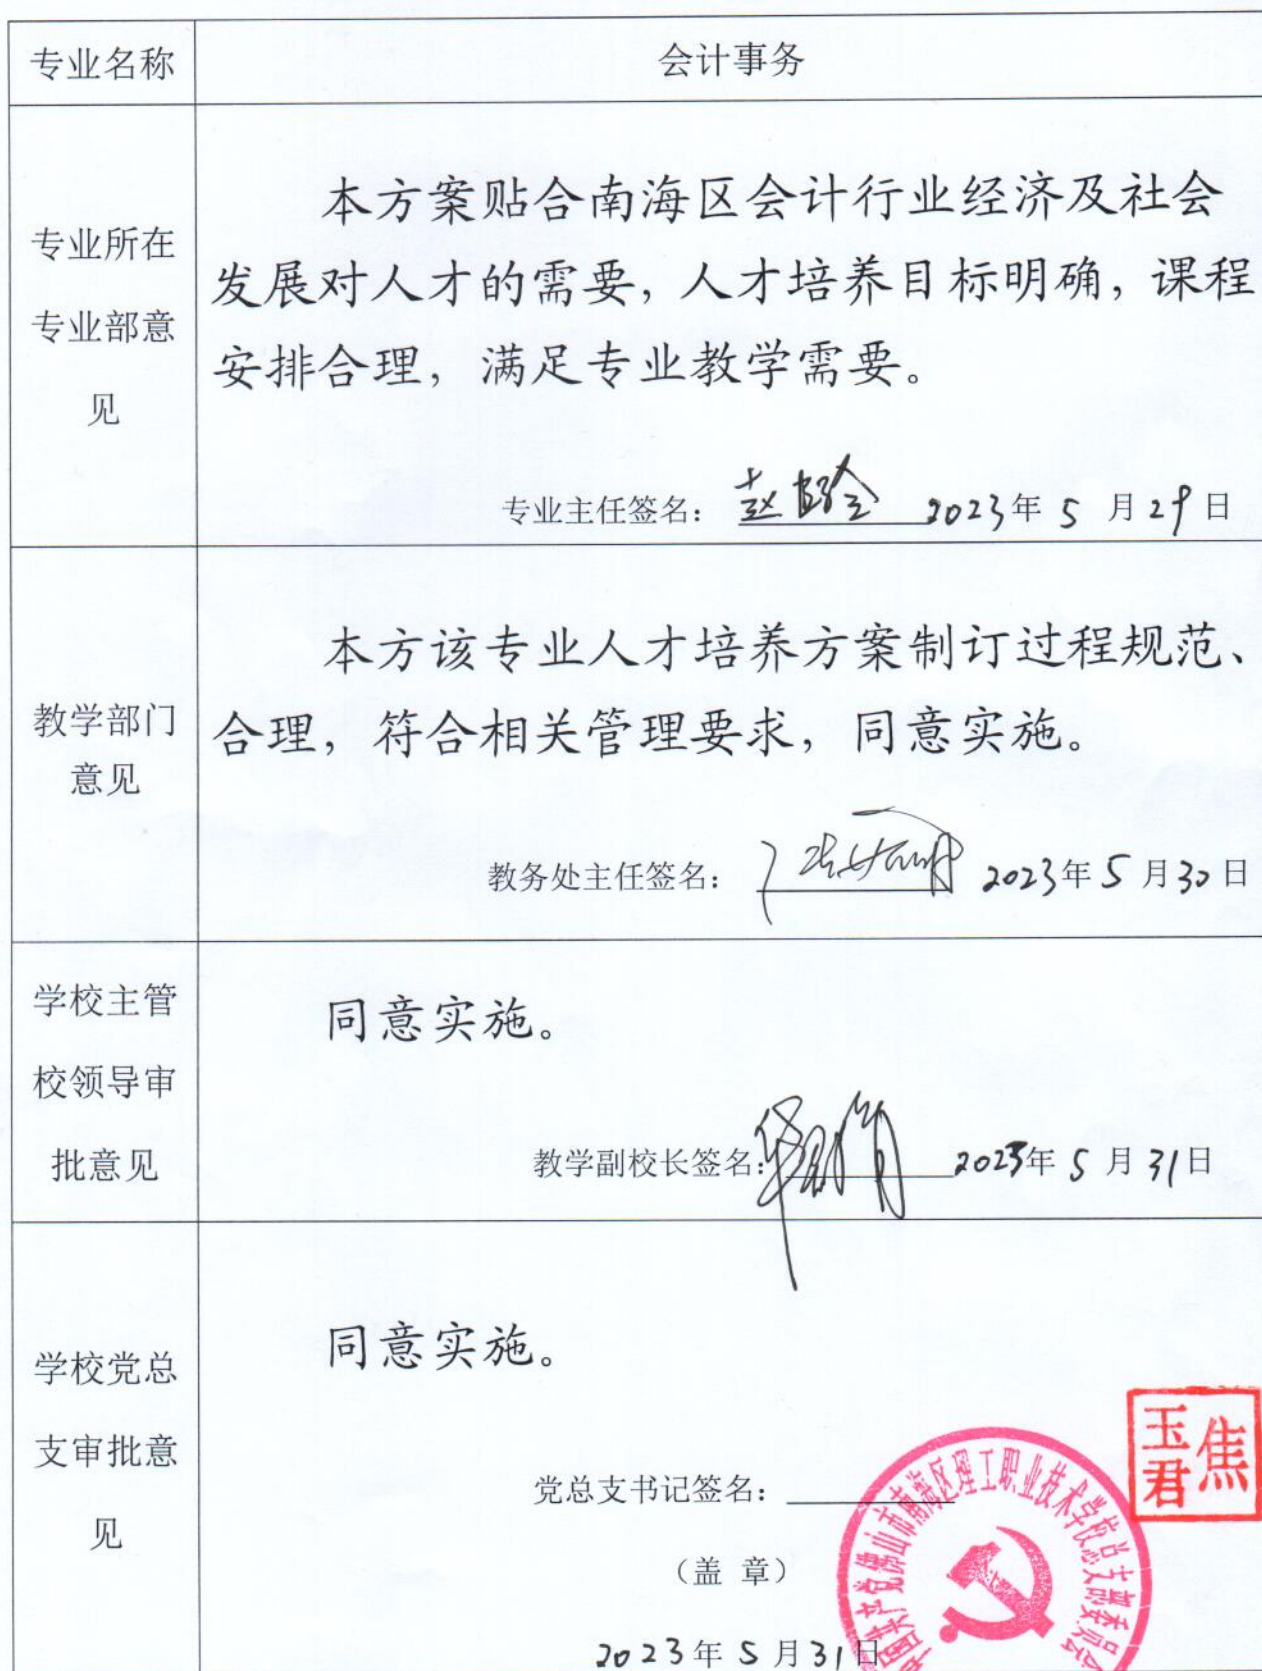 专业名称
会计事务
专业所在
专业部意
见
本方案贴合南海区会计行业经济及社会
发展对人才的需要，人才培养目标明确，课程
安排合理，满足专业教学需要。
专业主任签名： 2023年 5 月 29 日
教学部门
意见
本方该专业人才培养方案制订过程规范、
合理，符合相关管理要求，同意实施。
教务处主任签名： 2023年 5 月 30 日
学校主管
校领导审
批意见
同意实施。
教学副校长签名： 2023年 5 月 31日
学校党总
支审批意
见
同意实施。
党总支书记签名：
焦
玉君
（盖 章）
中国共产党佛山市南海区理工职业技术学校总支部委员会
2023年 5 月 31日